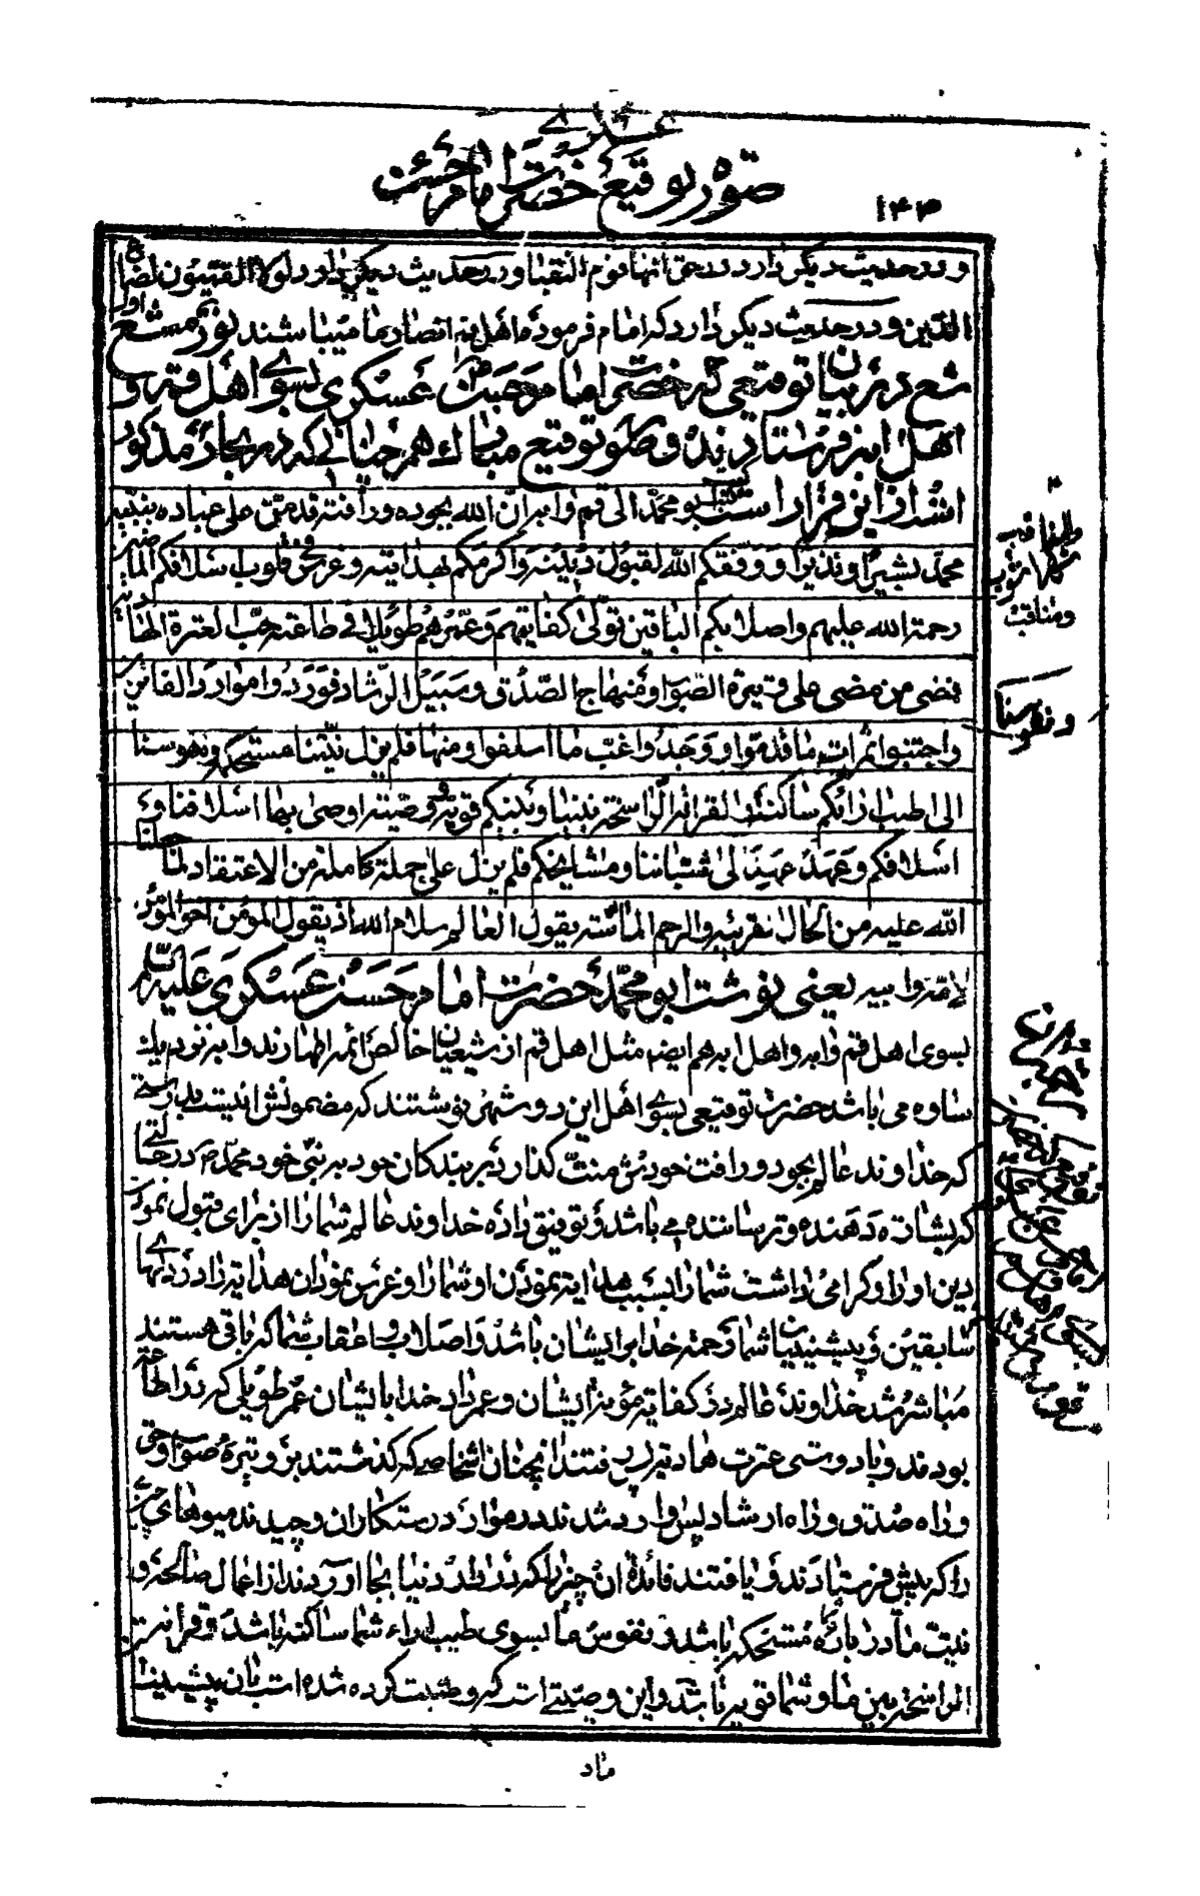 عسکرے
صورة توقیع حضرت امام حسن
۱۴۳
و در حدیث دیکر دارد در حق انها قوم النقبا و در حدیث دیکر دارد لولا القمیّون لضاع
الدّین و در حدیث دیکر دارد که امام فرموده اهل قم انصار ما میباشند نور مشعشع اول
شع در بیان توقیعی که حضرت امام حسن عسکری بسوے اهل قم و
اهل ابه فرستادند و صورت توقیع مبارک همچنانی که در بحار مذکور
شد از این قرار است کتب ابو محمّد الی قم وابه ان الله بجوده ورأفته قد منّ علی عباده بنبیّه
محمّد بشیرًا ونذیرًا ووفّقکم الله لقبول دینه واکرمکم بهدایته وغرس فی قلوب اسلافکم الماضین
رحمة الله علیهم واصلابکم الباقین تولّی کفایتهم وعمّرهم طویلا فی طاعته حبّ العترة الهادیة
فمضی من مضی علی وتیرة الصواب ومنهاج الصّدق وسبیل الرّشاد فوردوا موارد الفائزین
واجتنوا ثمرات ما قدّموا ووجدوا غبّ ما اسلفوا ومنها فلم یزل نیّتنا مستحکمة ونفوسنا
الی اطیب ارائکم ساکنة القرابة الرّاسخة بیننا وبینکم قویّة وصیّة اوصی بها اسلافنا و
اسلافکم وعهد عهد الی شبّاننا ومشایخکم فلم یزل علی جملة کاملة من الاعتقاد لما جعلنا
الله علیه من الحال القریبة والرحم الماسّة یقول العالم سلام الله اذ یقول المؤمن اخو المؤمن
لامّه وابیه یعنی نوشت ابو محمّد حضرت امام حسن عسکری علیه السّلام
بسوی اهل قم وابه واهل ابه هم ایضا مثل اهل قم از شیعیان خالص ائمه اطهارند وابه نزدیک
ساوه می باشد حضرت توقیعی بسوے اهل این دو شهر نوشتند که مضمونش اینست بدرستے
که خداوند عالم بجود و رافت خودش منّت کذارد بر بندکان خود به نبیّ خود محمّد ص در حالتے
که بشارت دهنده و ترساننده مے باشد و توفیق داده خداوند عالم شما را از برای قبول نمودن
دین او را و کرامی داشت شما را بسبب هدایت نمودن او شما را و غرس نمودن هدایت را در دلهاے
سابقین و پیشینیان شما رحمت خدا بر ایشان باشد و اصلاب و اعقاب شما که باقی هستند
مباشر شد خداوند عالم در کفایة مؤنه ایشان و عمر داد خدا بایشان عمر طویلی که در اطاعت
بودند و با دوستی عترت هادیه پس رفتند انچنان اشخاصیکه کذشتند بر وتیرهٔ صواب و حق
و راه صدق و راه ارشاد پس وارد شدند در موارد رستکاران و چیدند میوهای چیزے
را که پیش فرستادند و یافتند فائدهٔ ان چیزیرا که در دار دنیا بجا اوردند از اعمال صالحه و
نیت ما در باره مستحکم باشد و نفوس ما بسوی طیب اراء شما ساکنه باشد و قرابت
الراسخه بین ما و شما قویه باشد و این وصیتے است که وصیت کرده شده است بان پیشینیان
ماد
ومناقب
ونفوسنا